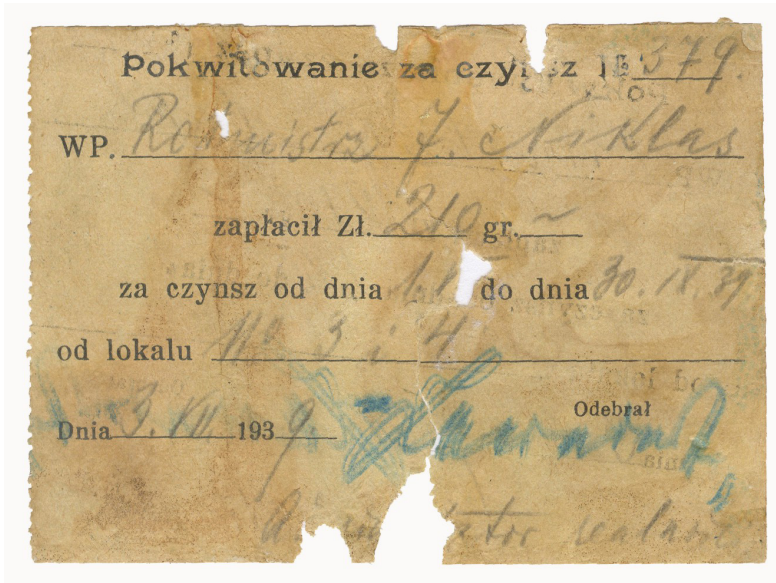 Pokwitowanie za czynsz № 379.
WP. Rotmistrz J. Niklas
zapłacił Zł. 210 gr. ~
za czynsz od dnia do dnia 30. IX. 39
od lokalu No 3 i 4
Odebrał
Dnia 3. VII 1939.